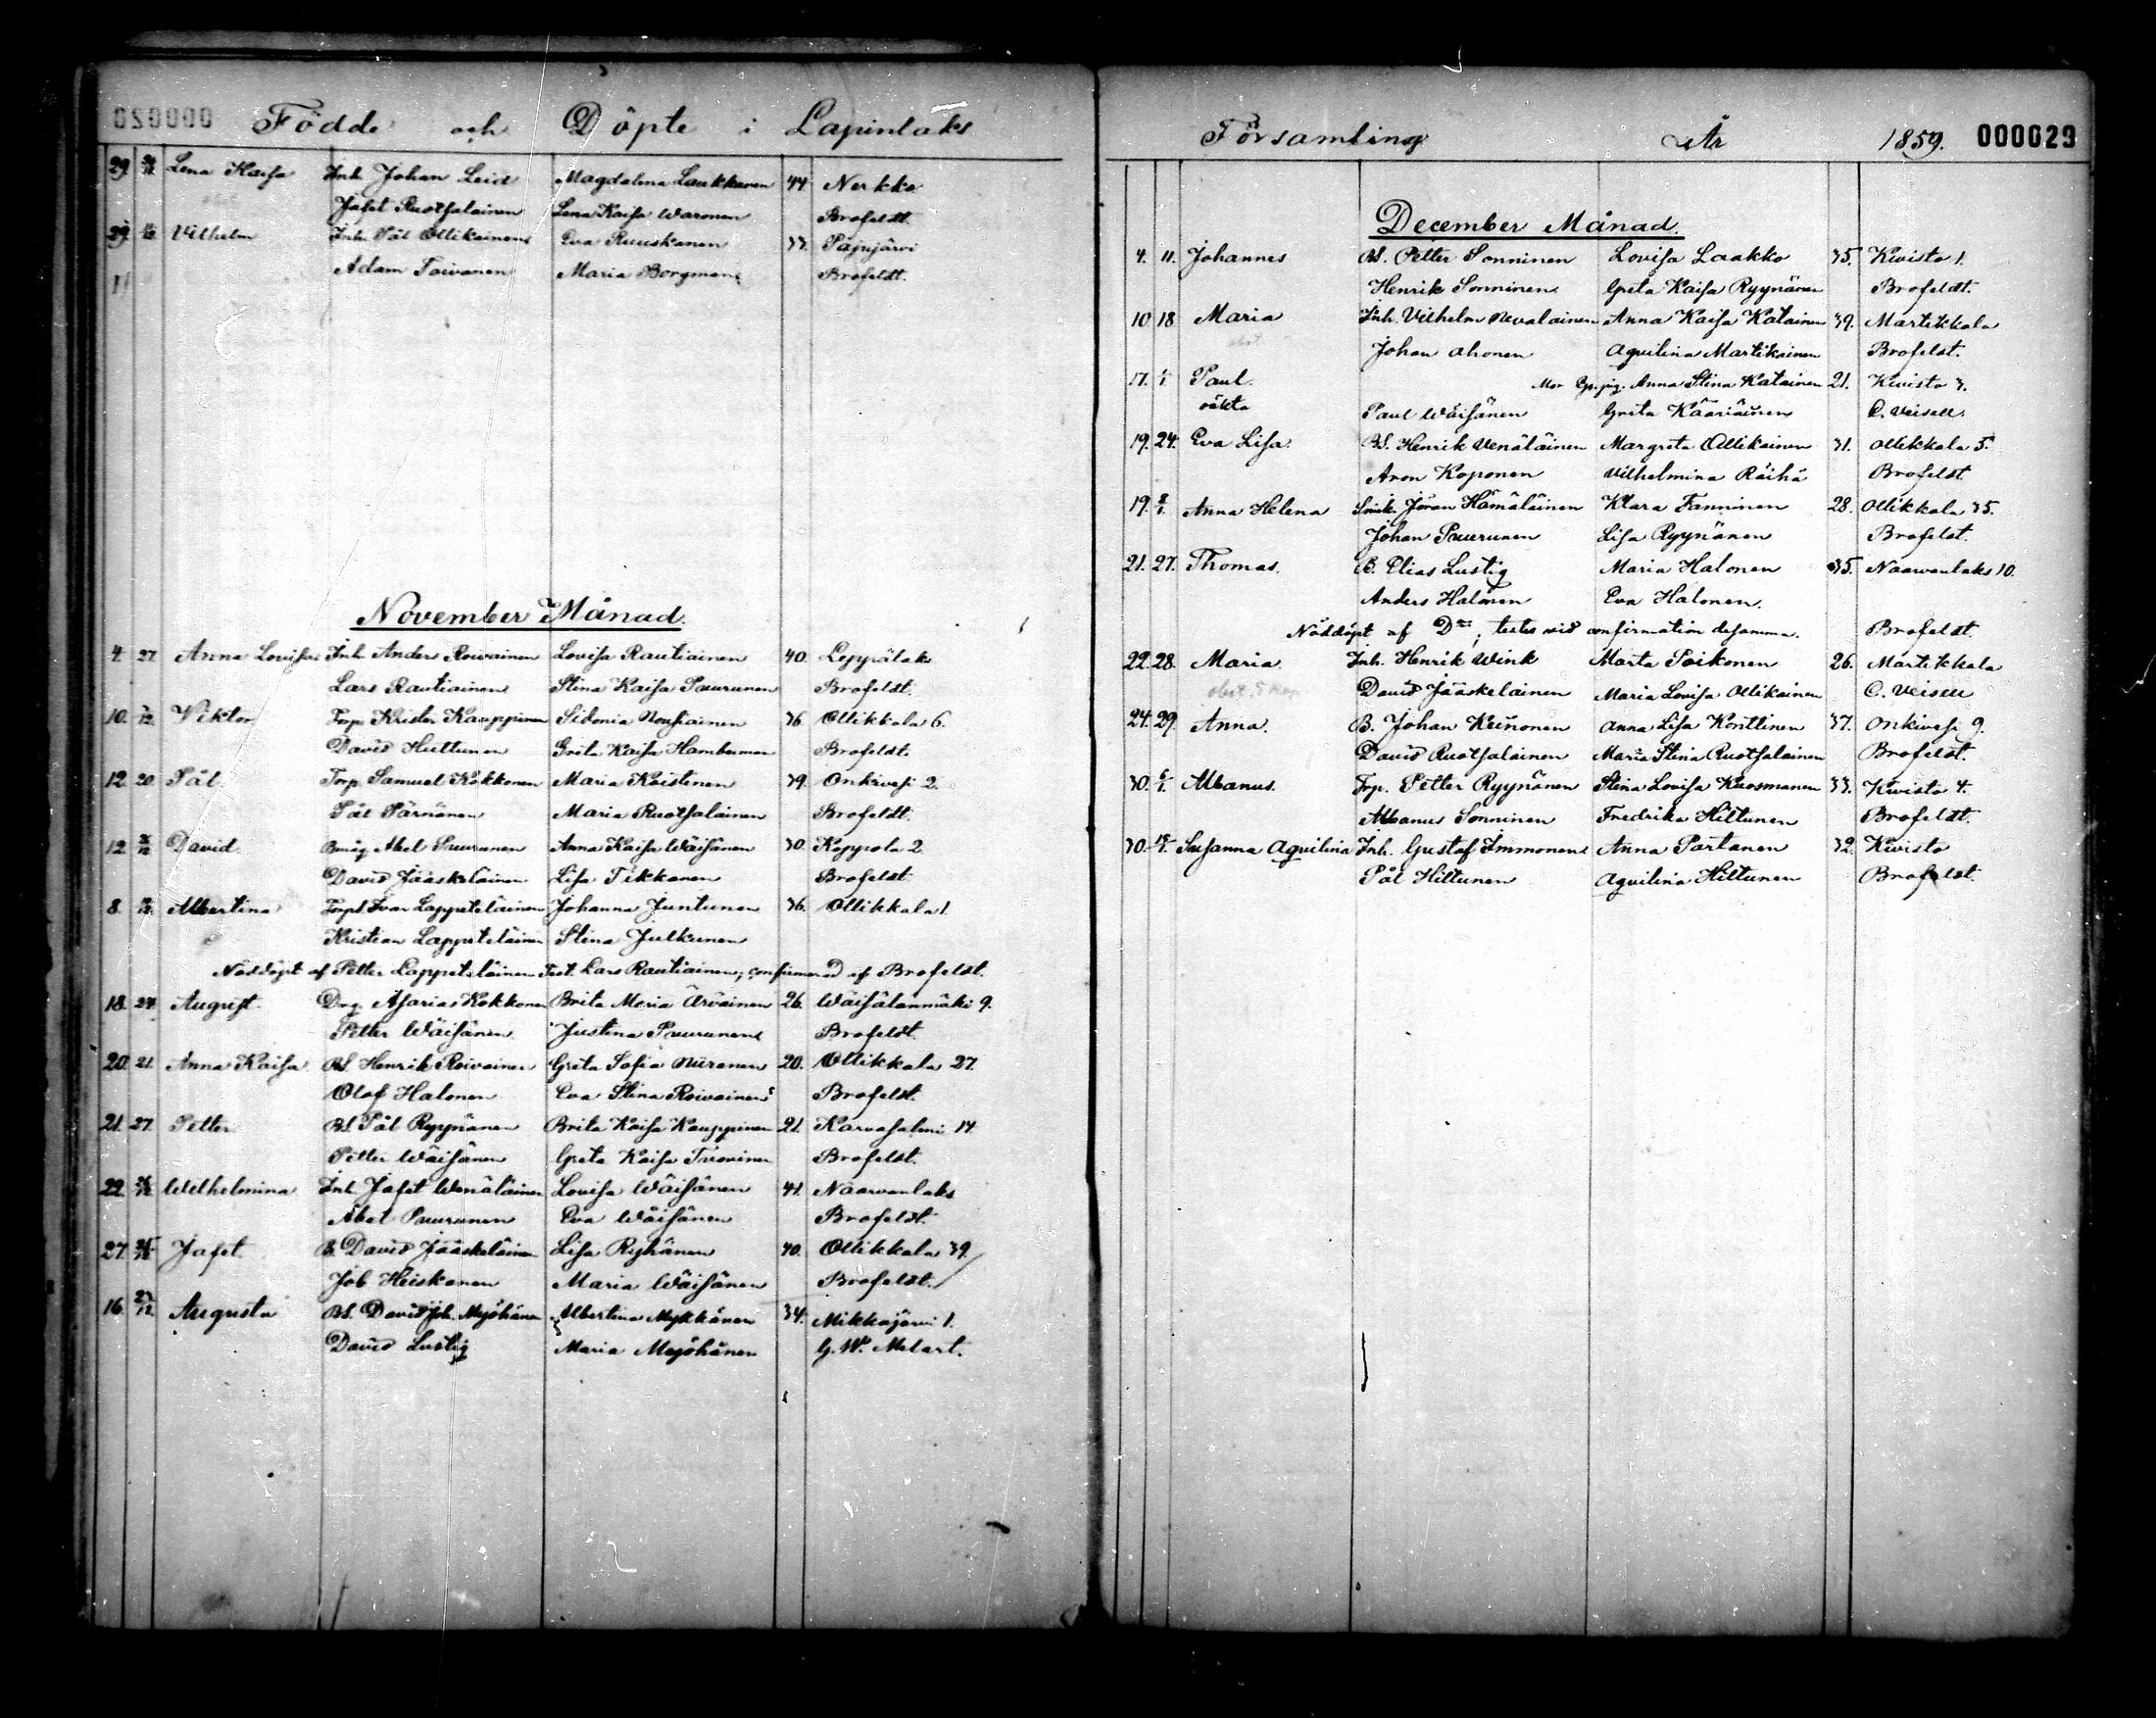 Födde och Döpte i Lapinlaks
29. Lena Kaisa Inh. Johan Leid Magdalena Laukkanen 44 Nerkko
Jafet Ruotsalainen Lena Kaisa Waronen Brofeldt.
29. Vilhelm Inh. Pål Ollikainen Eva Ruuskanen 37. Pajujärvi
Adam Toivanen Maria Borgman Brofeldt.
November Månad.
4. 27. Anna Lovisa Inh. Anders Roivainen Lovisa Rautiainen 40. Leppälaks
Lars Rautiainen Stina Kaisa Puurunen Brofeldt.
10. Viktor Torp. Krister Kauppinen Sidonia Nousiainen 36. Ollikkala 6.
David Huttunen Greta Kaisa Brofeldt.
12. 20. Pål Torp. Samuel Kokkonen Maria Koistinen 39. Onkivesi 2.
Pål Pärnänen Maria Ruotsalainen Brofeldt.
12. David Abel Puurunen Anna Kaisa Wäisänen 30. Keppola 2.
David Jääskeläinen Lisa Tikkanen Brofeldt.
8. Albertina Torp. Ivar Lappeteläinen Johanna Juntunen 36. Ollikkala 1.
Kristian Lappeteläinen Stina Julkunen
Nöddöpt af Petter Lappeteläinen Test. Lars Rautiainen, confirmerad af Brofeldt.
18. 27. August. Asarias Kokkonen Brita Maria Ärväinen 26. Wäisälänmäki 9.
Petter Wäisänen Justina Puurunen Brofeldt.
20. 21. Anna Kaisa Bs. Henrik Roivainen Greta Sofia Niiranen 20. Ollikkala 27.
Olof Halonen Eva Stina Roivainen Brofeldt.
21. 27. Petter Bs. Pål Ryynänen Brita Kaisa Kauppinen 21. Karvasalmi 14.
Petter Wäisänen Greta Kaisa Brofeldt.
22. Wilhelmina Inh. Jafet Wenäläinen Lovisa Wäisänen 41. Naarvanlaks
Abel Puurunen Eva Wäisänen Brofeldt.
27. Jafet. B. David Jääskeläinen Lisa Ryhänen 40. Ollikkala 39.
Job Heiskanen Maria Wäisänen Brofeldt.
16. 27/12 Augusta Bs. David Joh. Myöhänen Albertina Mykkänen 34. Mikkajärvi 1.
David Lustig Maria Myöhänen G. W. Melart.
Församling År 1859. 000029
December Månad.
4. 11. Johannes Bs. Petter Sonninen Lovisa Laakko 35. Kivisto 1.
Henrik Sonninen Greta Kaisa Ryynänen Brofeldt.
10 18 Maria Inh. Vilhelm Nevalainen Anna Kaisa Katainen 39. Martikkala
Johan Ahonen Aquilina Martikainen Brofeldt.
17. Paul. Mor Anna Stina Katainen 21. Kivisto 3.
oäkta Paul Wäisänen Greta Kääriäinen C. Veisell.
19. 24. Eva Lisa. Bs. Henrik Venäläinen Margreta Ollikainen 31. Ollikkala 5.
Aron Koponen Vilhelmina Räihä Brofeldt.
19. 8/1. Anna Helena Jöran Hämäläinen Klara Fanninen 28. Ollikkala 35.
Johan Puurunen Lisa Ryynänen Brofeldt.
21. 27. Thomas. B. Elias Lustig Maria Halonen 35. Naarvanlaks 10.
Anders Halonen Eva Halonen.
Nöddöpt af Do; testes vid confirmation desamma. Brofeldt.
22. 28. Maria Inh. Henrik Wink Marta Poikonen 26. Martikkala
David Jääskeläinen Maria Lovisa Ollikainen C. Veisell
24. 29. Anna. B. Johan Keinonen Anna Lisa Konttinen 37. Onkivesi 9.
David Ruotsalainen Maria Stina Ruotsalainen Brofeldt.
30. 6/1. Albanus. Torp. Petter Ryynänen Stina Lovisa Kuosmanen 33. Kivisto 4.
Albanus Sonninen Fredrika Hiltunen Brofeldt.
30. 15/1. Susanna Aquilina Inh. Gustaf Immonen Anna Partanen 32. Kivisto
Pål Hiltunen Aquilina Hiltunen Brofeldt.